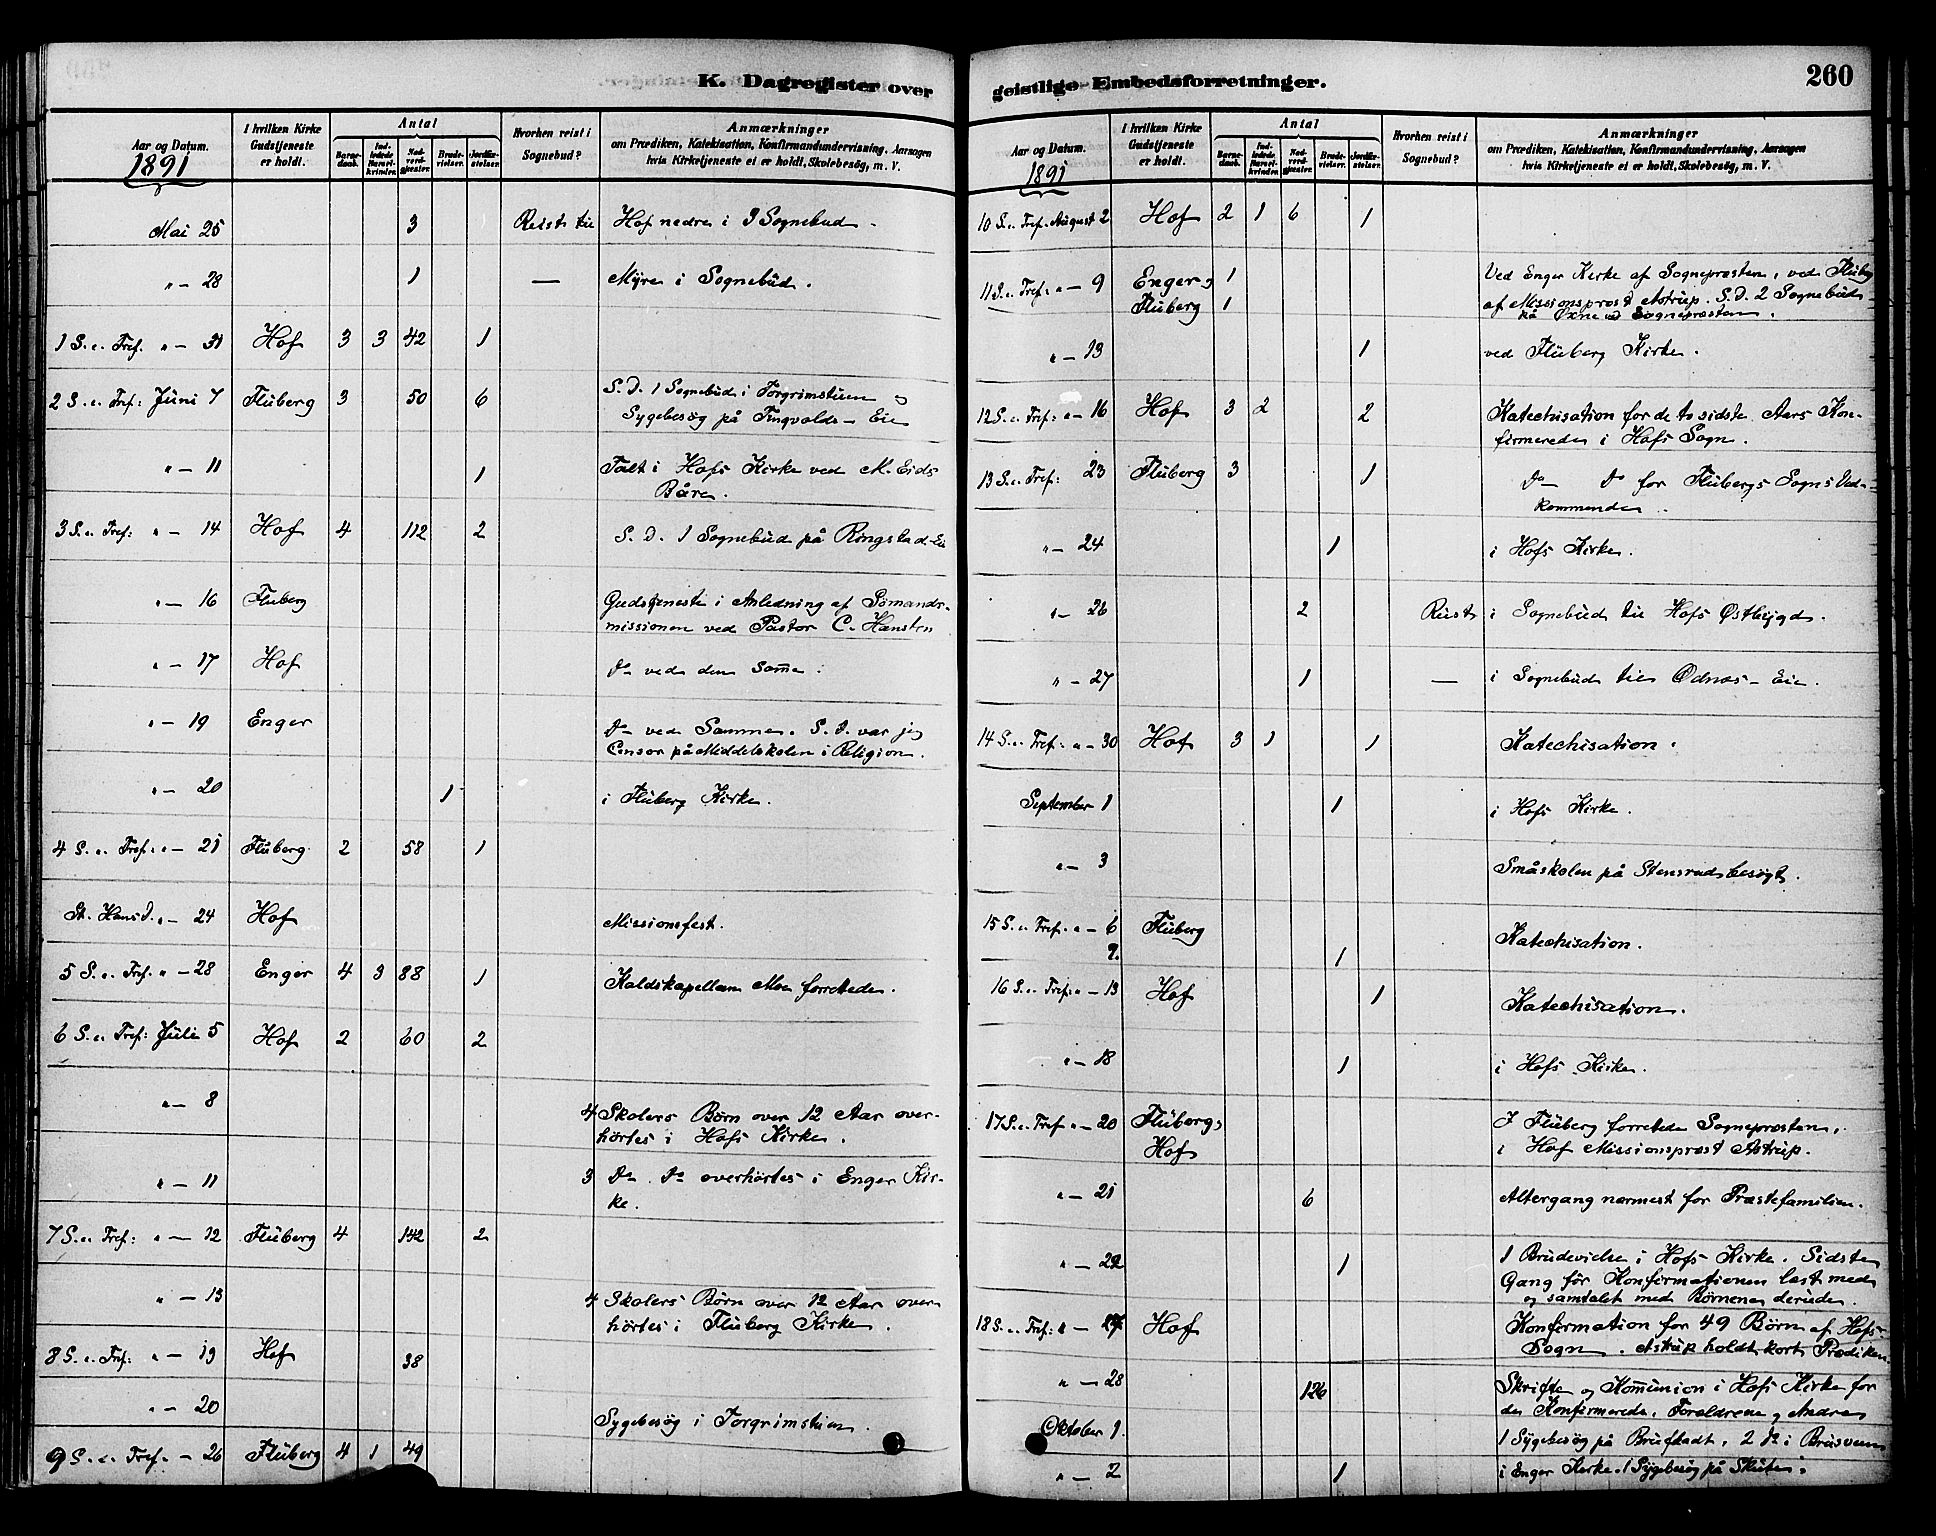 K. Dagregister over
Aar og Datum.
1891
I hvilken Kirke Gudstjeneste er holdt.
Antal
Barnedaab.
Indledede Barselkvinder.
Nadverdgjester.
Brudevielser.
Jordfæstelser.
Hvorhen reist i Sognebud?
Anmærkninger
om Prædiken, Katekisation, Konfirmandundervisning, Aarsagen
hvis Kirketjeneste ei er holdt, Skolebesög, m. V.
Mai 25 3 Reist til Hof nedre i 3 Sognebud.
" — 28 1 — Myre i Sognebud.
1 S. e. Tref. " — 31 Hof 3 3 42 1
2 S. e. Tref: Juni 7 Fluberg 3 50 6 S. D. 1 Sognebud i Torgrimstuen og
Sygebesøg på Tingvolds-Eie
" — 11 1 Talt i Hofs Kirke ved M. Eids
Båre.
3 S. e. Tref: " — 14 Hof 4 112 2 S. D. 1 Sognebud på Ringstad-Eie
" — 16 Fluberg Gudstjeneste i Anledning af Sømands-
missionen ved Pastor C. Hansten
" — 17 Hof Do ved den samme.
" — 19 Enger Do ved Samme. S. D. var jeg
Censor på Middelskolen i Religion.
" — 20 1 i Fluberg Kirke.
4 S. e. Tref: " — 21 Fluberg 2 58 1
St. Hansd. " — 24 Hof Missionsfest.
5 S. e. Tref. " — 28 Enger 4 3 88 1 Kaldskapellan Moe forrettede.
6 S. e. Tref: Juli 5 Hof 2 60 2
" — 8 4 Skolers Børn over 12 Aar over-
hørtes i Hofs Kirke.
" — 11 3 Do Do overhørtes i Enger Kir-
ke.
7 S. e. Tref: " — 12 Fluberg 4 142 2
" — 13 4 Skolers Børn over 12 Aar over
hørtes i Fluberg Kirke.
8 S. e. Tref: " — 19 Hof 38
" — 20 Sygebesøg i Torgrimstuen.
9 S. e. Tref. — 26 Fluberg 4 1 49
geistlige Embedsforretninger.
260
Aar og Datum.
1891
I hvilken Kirke Gudstjeneste er holdt.
Antal
Barnedaab.
Indledede Barselkvinder.
Nadverdgjester.
Brudevielser.
Jordfæstelser.
Hvorhen reist i Sognebud?
Anmærkninger
om Prædiken, Katekisation, Konfirmandundervisning, Aarsagen
hvis Kirketjeneste ei er holdt, Skolebesög, m. V.
10 S. e. Tref. August 2 Hof 2 1 6 1
11 S. e. Tref. " — 9 Enger, 1 Ved Enger Kirke af Sognepræsten, ved Fluberg
Fluberg 1 af Missionspræst Astrup. S. D. 2 Sognebud
på Øxne ved Sognepræsten.
" — 13 1 ved Fluberg Kirke.
12 S. e. Tref: " — 16 Hof 3 2 2 Katechisation for de to sidste Aars Kon-
firmerede i Hofs Sogn.
13 S. e. Tref: 23 Fluberg 3 1 Do — Do for Flubergs Sogns Ved-
kommende.
" — 24 1 i Hofs Kirke.
" — 26 2 Reist i Sognebud til Hofs Østbygd.
" — 27 1 — i Sognebud til Odnæs-Eie.
14 S. e. Tref: " — 30 Hof 3 1 1 Katechisation.
September 1 1 i Hofs Kirke.
" — 3 Småskolen på Stensrud besøgt.
15 S. e. Tref. " — 6 Fluberg Katechisation.
9. 1
16 S. e. Tref: " — 13 Hof 1 Katechisation.
" — 18 1 i Hofs Kirke.
17 S. e. Tref " — 20 Fluberg, I Fluberg forrettede Sognepræsten,
Hof i Hof Missionspræst Astrup.
" — 21 6 Altergang nærmest for Præstefamilien.
" — 22 1 1 Brudevielse i Hofs Kirke. Sidste
Gang før Konfirmationen læst med
og samtalet med Børnene derude.
18 S. e. Tref: " — 27 Hof Konfirmation for 49 Børn af Hofs
Sogn. Astrup holdt kort Prædiken.
" — 28 126 Skrifte og Kommunion i Hofs Kirke for
de Konfirmerede, Forældrene og Andre
Oktober 1. 1 Sygebesøg på Brufladt, 2 Do i
" — 2 1 i Enger Kirke. 1 Sygebesøg på